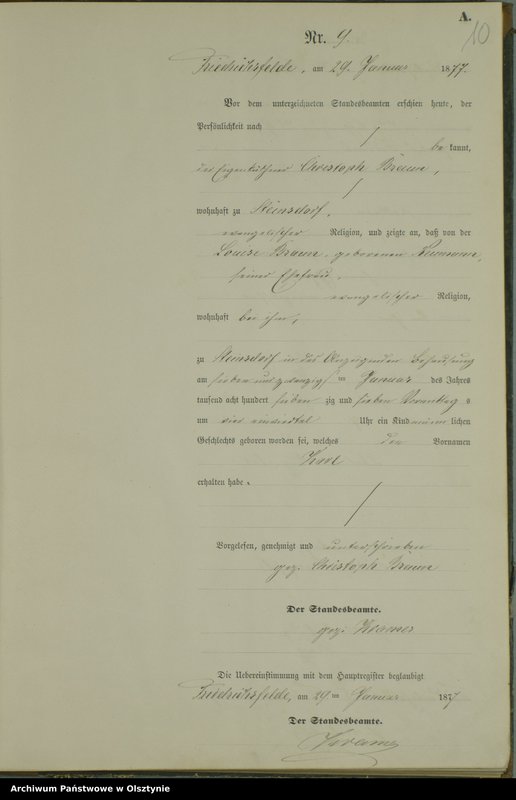 A.
10
Nr. 9.
Friedrichsfelde, am 29. Januar 1877.
Vor dem unterzeichneten Standesbeamten erschien heute, der
Persönlichkeit nach
be kannt,
der Eigenkäthner Christoph Braun,
wohnhaft zu Steinsdorf,
evangelischer Religion, und zeigte an, daß von der
Louise Braun, geborenen Neumann,
seiner Ehefrau,
evangelischer Religion,
wohnhaft bei ihm,
zu Steinsdorf in des Anzeigenden Behausung
am sieben und zwanzigsten Januar des Jahres
tausend acht hundert sieben zig und sieben Vormittag s
um vier einviertel Uhr ein Kind männ lichen
Geschlechts geboren worden sei, welches den Vornamen
Karl
erhalten habe.
Vorgelesen, genehmigt und unterschrieben
gez. Christoph Braun
Der Standesbeamte.
gez. Kramer
Die Uebereinstimmung mit dem Hauptregister beglaubigt
Friedrichsfelde, am 29 ten Januar 1877
Der Standesbeamte.
Kramer
Archiwum Państwowe w Olsztynie